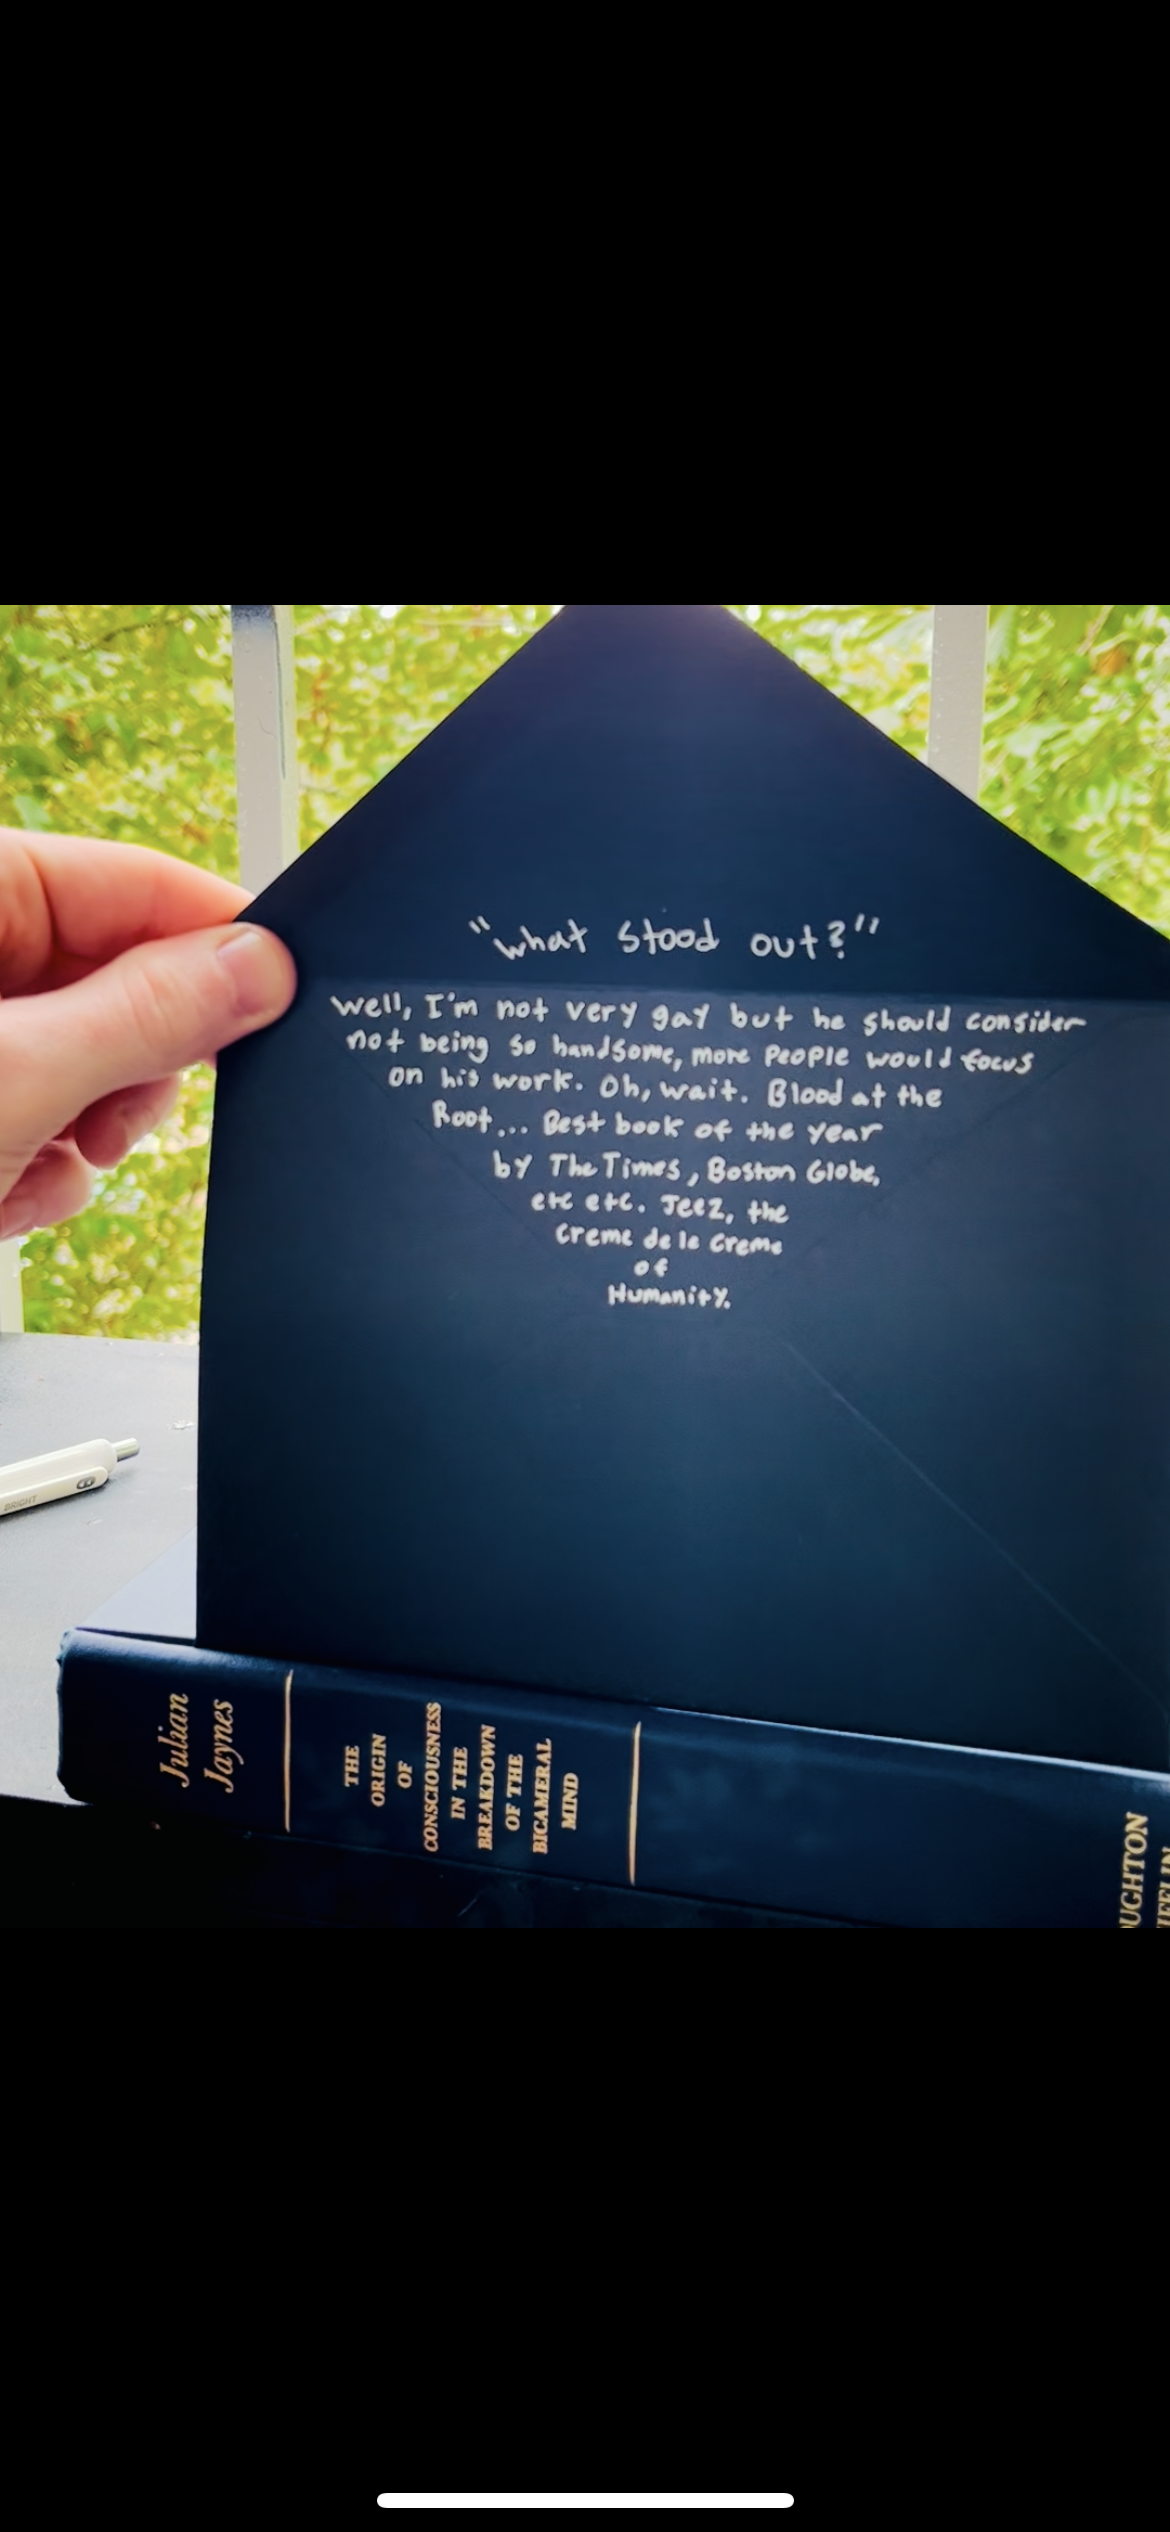 "what stood out?"
Well, I'm not very gay but he should consider
not being so handsome, more people would focus
on his work. Oh, wait. Blood at the
Root... Best book of the year
by The Times, Boston Globe,
etc etc. Jeez, the
Creme de le Creme
of
Humanity.
BRIGHT
Julian
Jaynes
THE
ORIGIN
OF
CONSCIOUSNESS
IN THE
BREAKDOWN
OF THE
BICAMERAL
MIND
OUGHTON
IFFLIN